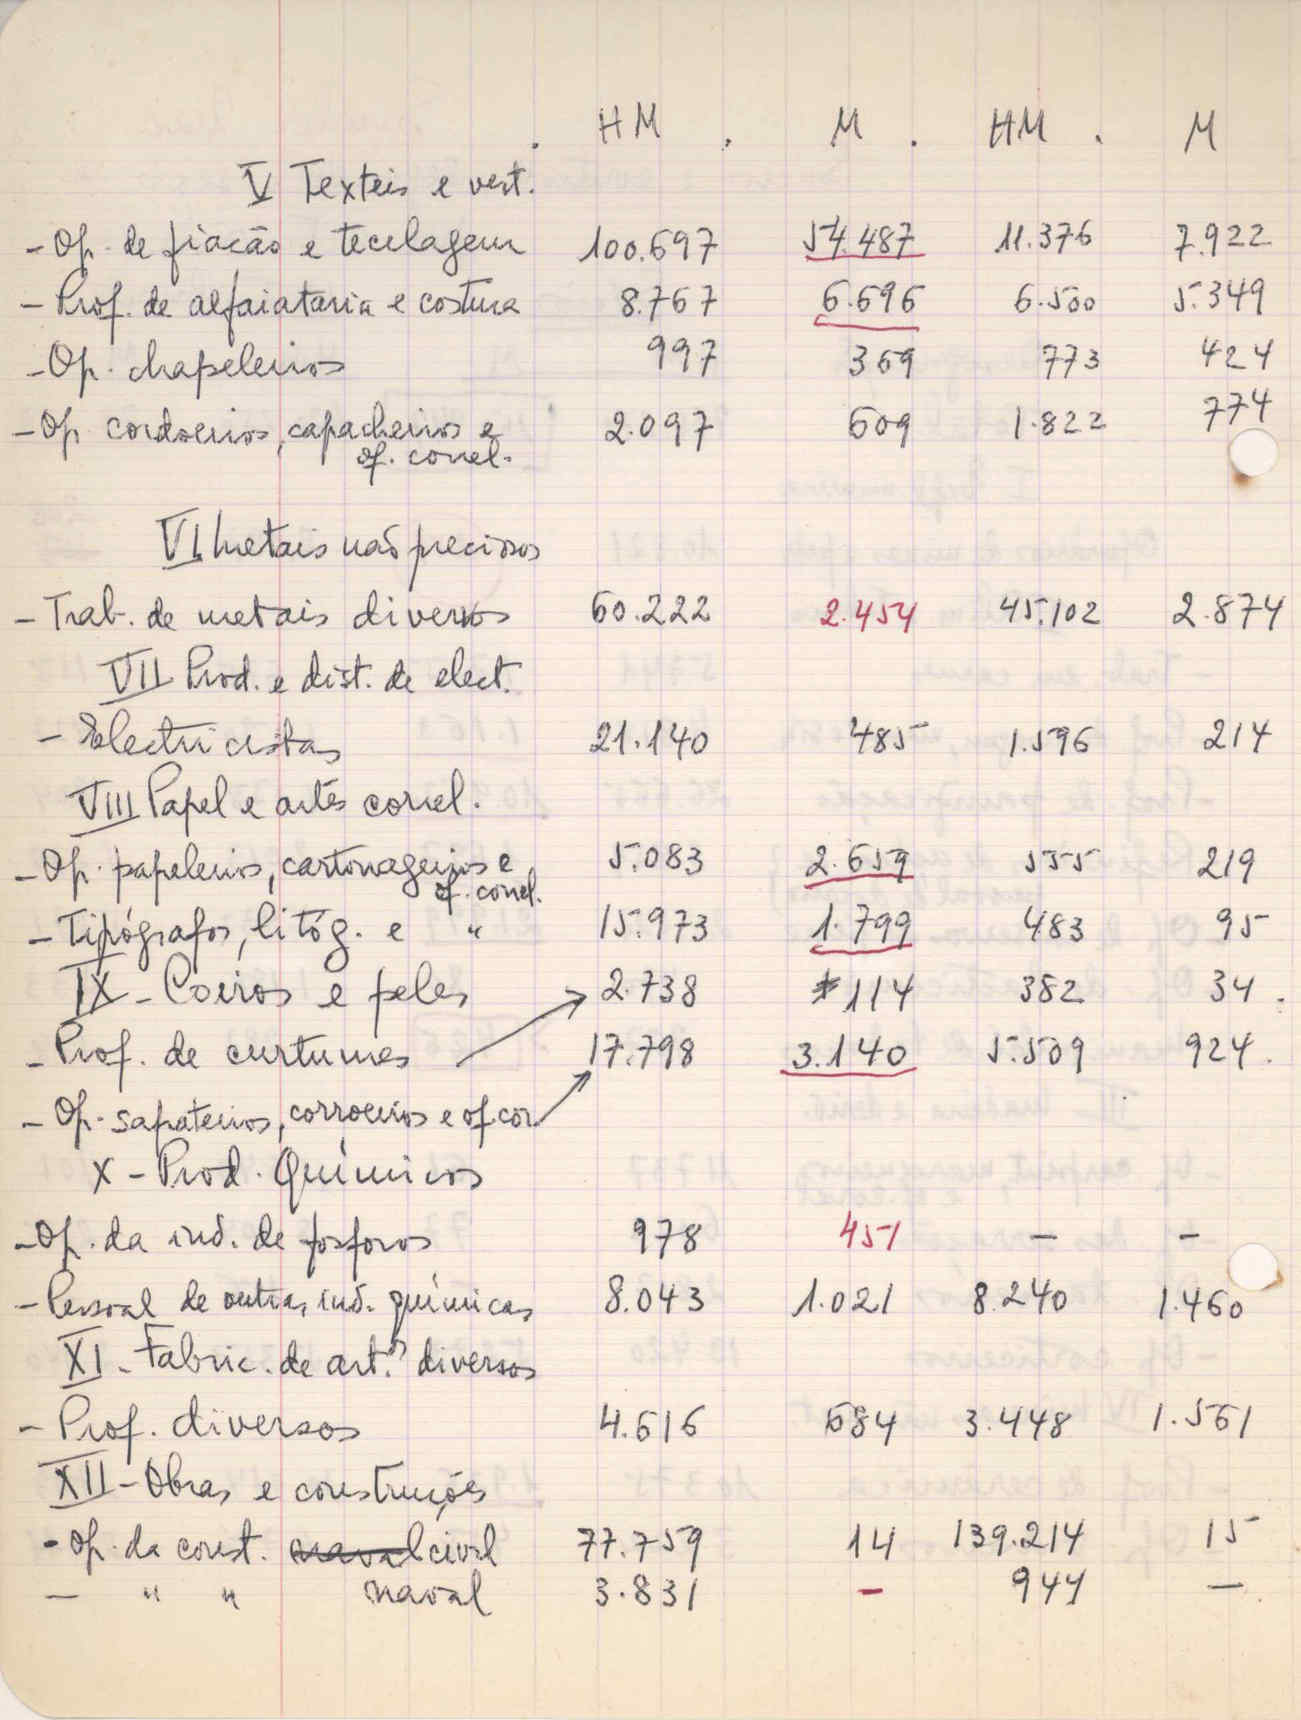 HM . M . HM . M
V Texteis e vest.
- Op. de fiação e tecelagem 100.697 54.487 11.376 7.922
- Prof. de alfaiataria e costura 8.767 6.696 6.500 5.349
- Op. chapeleiros 997 369 773 424
- Op. cordoeiros, capacheiros e 2.097 609 1.822 774
of. correl.
VI Metais não preciosos
- Trab. de metais diversos 60.222 2.454 45.102 2.874
VII Prod. e dist. de elect.
- Electricistas 21.140 485 1.596 214
VIII Papel e artes correl.
- Op. papeleiros, cartonageiros e 5.083 2.659 555 219
of. correl.
- Tipógrafos, litóg. e " 15.973 1.799 483 95
IX - Coiros e peles 2.738 114 382 34.
- Prof. de curtumes 17.798 3.140 5.509 924.
- Op. sapateiros, correeiros e of cor
X - Prod. Químicos
- Op. da ind. de fosforos 978 451 — —
- Pessoal de outras ind. químicas 8.043 1.021 8.240 1.460
XI - Fabric. de art.os diversos
- Prof. diversos 4.616 684 3.448 1.561
XII - Obras e construções
- Op. da const. naval civil 77.759 14 139.214 15
- " " naval 3.831 - 944 —